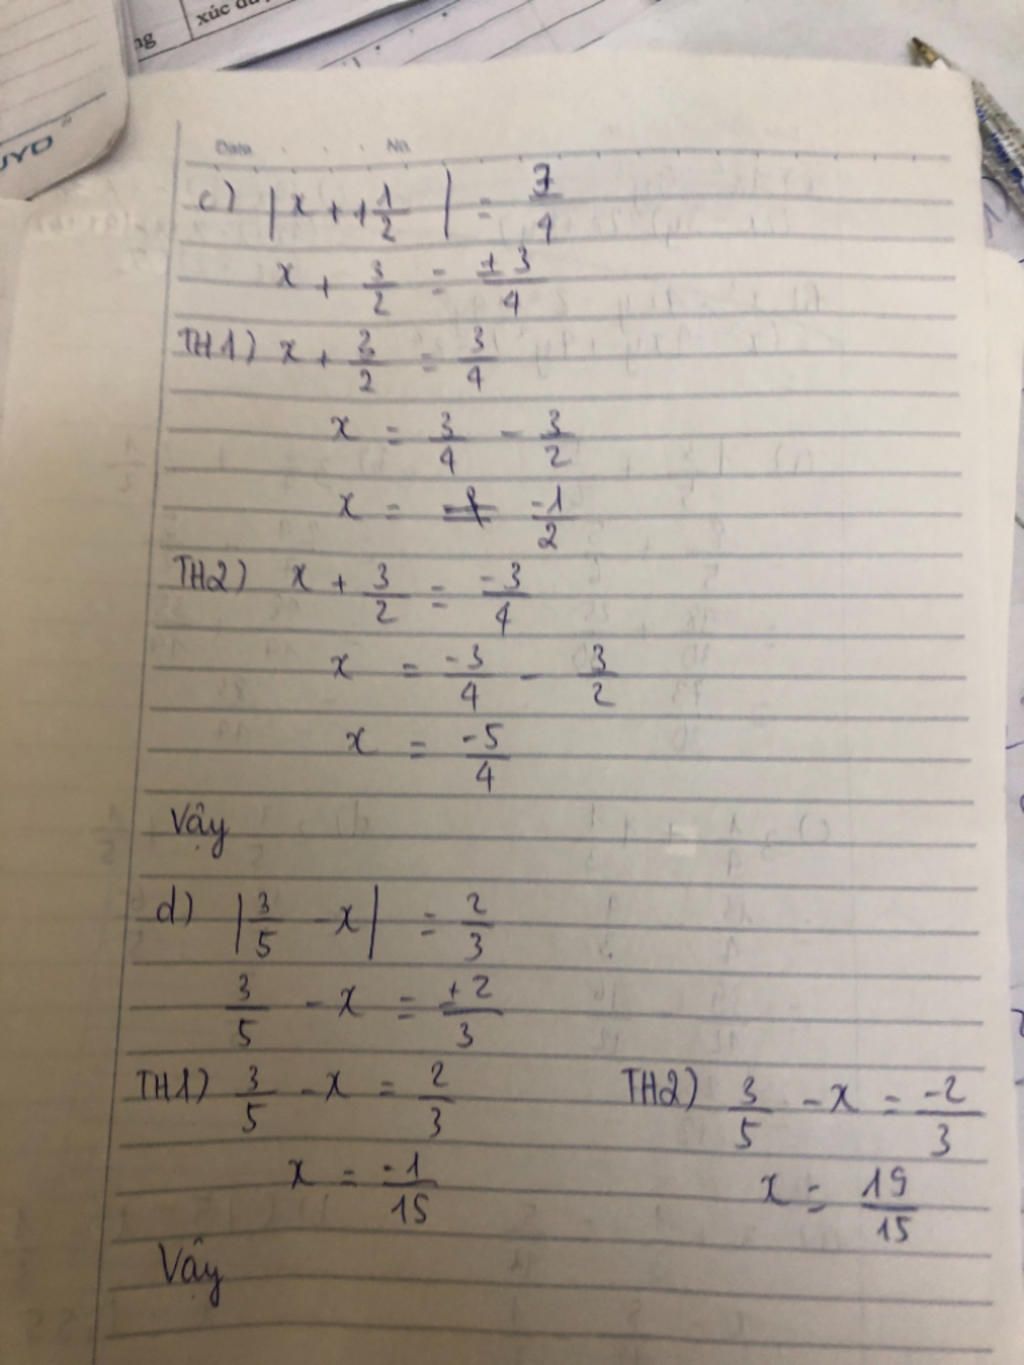 ng
xúc
UYO
Date No
c) |x + 1 1/2| = 7/4
x + 3/2 = ±3/4
TH1) x + 3/2 = 3/4
x = 3/4 - 3/2
x = -1/2
TH2) x + 3/2 = -3/4
x = -3/4 - 3/2
x = -5/4
Vậy
d) |3/5 - x| = 2/3
3/5 - x = ±2/3
TH1) 3/5 - x = 2/3 TH2) 3/5 - x = -2/3
x = -1/15 x = 19/15
Vậy